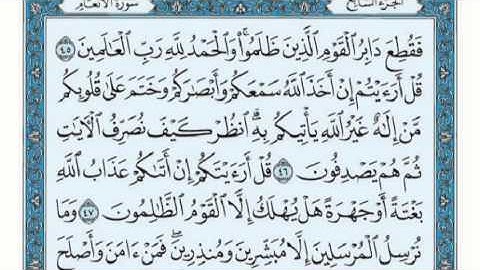 سورة الأنعام
الجزء السابع
فَقُطِعَ دَابِرُ الْقَوْمِ الَّذِينَ ظَلَمُوا وَالْحَمْدُ لِلَّهِ رَبِّ الْعَالَمِينَ ٤٥
قُلْ أَرَءَيْتُمْ إِنْ أَخَذَ اللَّهُ سَمْعَكُمْ وَأَبْصَارَكُمْ وَخَتَمَ عَلَى قُلُوبِكُم
مَّنْ إِلَٰهٌ غَيْرُ اللَّهِ يَأْتِيكُم بِهِ انظُرْ كَيْفَ نُصَرِّفُ الْآيَٰتِ
ثُمَّ هُمْ يَصْدِفُونَ ٤٦ قُلْ أَرَءَيْتَكُمْ إِنْ أَتَىٰكُمْ عَذَابُ اللَّهِ
بَغْتَةً أَوْ جَهْرَةً هَلْ يُهْلَكُ إِلَّا الْقَوْمُ الظَّالِمُونَ ٤٧ وَمَا
نُرْسِلُ الْمُرْسَلِينَ إِلَّا مُبَشِّرِينَ وَمُنذِرِينَ فَمَنْ ءَامَنَ وَأَصْلَحَ